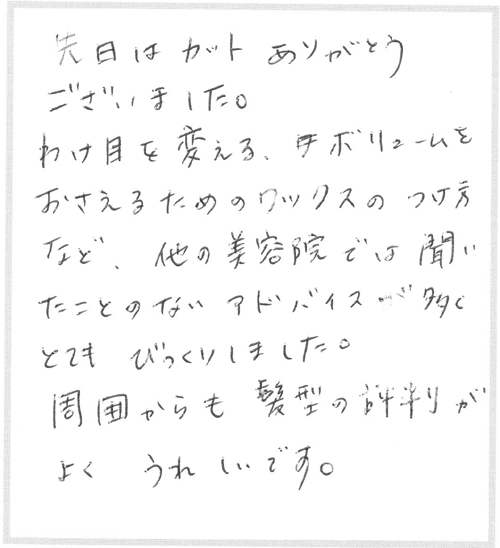 先日は カット ありがとう
ございました。
わけ目を変える、ボリュームを
おさえるためのワックスの つけ方
など、他の美容院では聞い
たことのない アドバイスが多く
とても びっくりしました。
周囲からも 髪型の評判が
よく うれしいです。